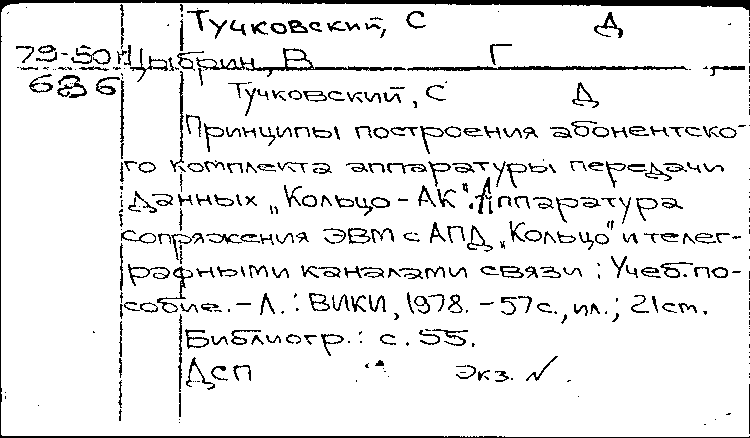 Тучковский, С Д
79-50
Цыбрин, В Г
636
Тучковский, С Д
Принципы построения абонентско-
го комплекта аппаратуры передачи
данных „Кольцо-АК". Аппаратура
сопряжения ЭВМ с АПД „Кольцо" и телег-
рафными каналами связи : Учеб. по-
собие. - Л. : ВИКИ, 1978. - 57 с., ил.; 21 cm.
Библиогр.: с. 55.
ДСП Экз. №.